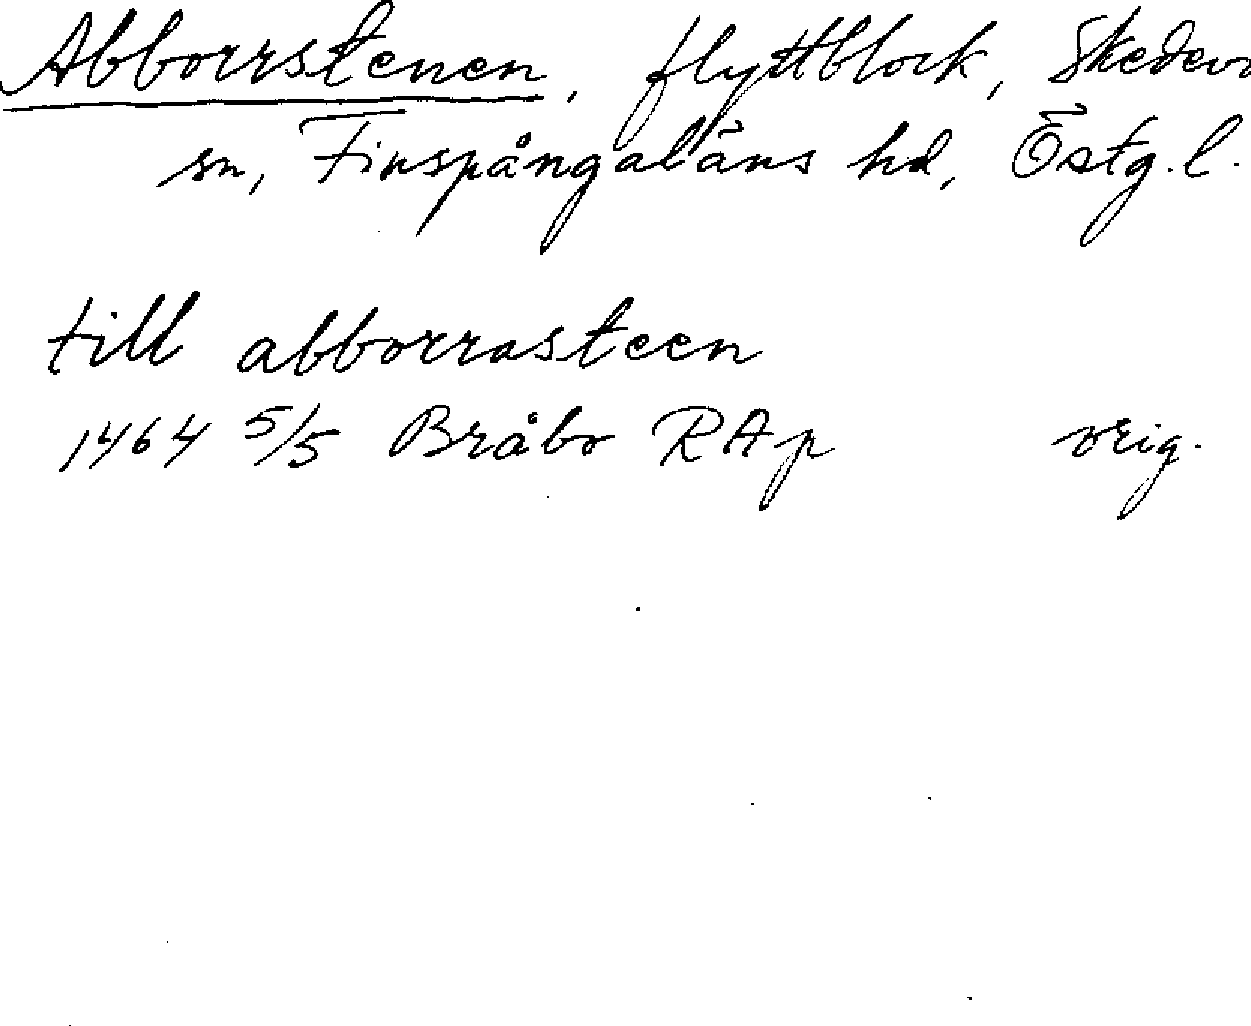 Abborrstenen, flyttblock, Skedevi
sn, Finspångaläns hd, Östg.l.
till abborrasteen
1464 5/5 Bråbo RAp orig.